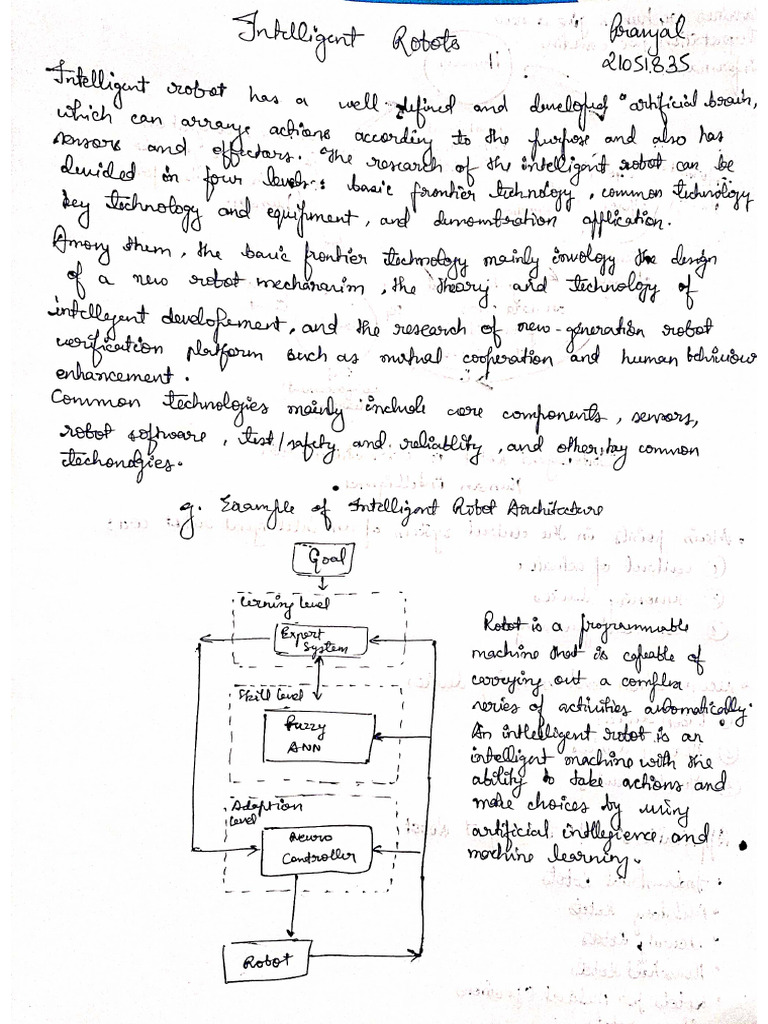 Intelligent Robots
Pranjal
21051835
Intelligent robot has a well defined and developed "artificial brain,
which can arrange actions according to the purpose and also has
sensors and effectors. The research of the intelligent robot can be
devided in four levels: basic frontier technology, common technology
key technology and equipment, and demombration application.
Among them, the basic frontier technology mainly invology the design
of a new robot mechanism, the theory and technology of
intellegent developement, and the research of new-generation robot
verification platform such as mutual cooperation and human behiviour
enhancement.
Common technologies mainly include core components, sensors,
robot software, test/safety and reliablity, and other key common
techonolgies.
g. Example of Intelligent Robot Architecture
Goal
Lerning level
Expert
System
Skill level
Fuzzy
ANN
Adaption
level
Neuro
Controller
Robot
Robot is a programmable
machine that is capeable of
carrying out a complex
series of activities automatically.
An intelligent robot is an
intelligent machine with the
ability to take actions and
make choices by using
artificial intllegience and
machine learning.